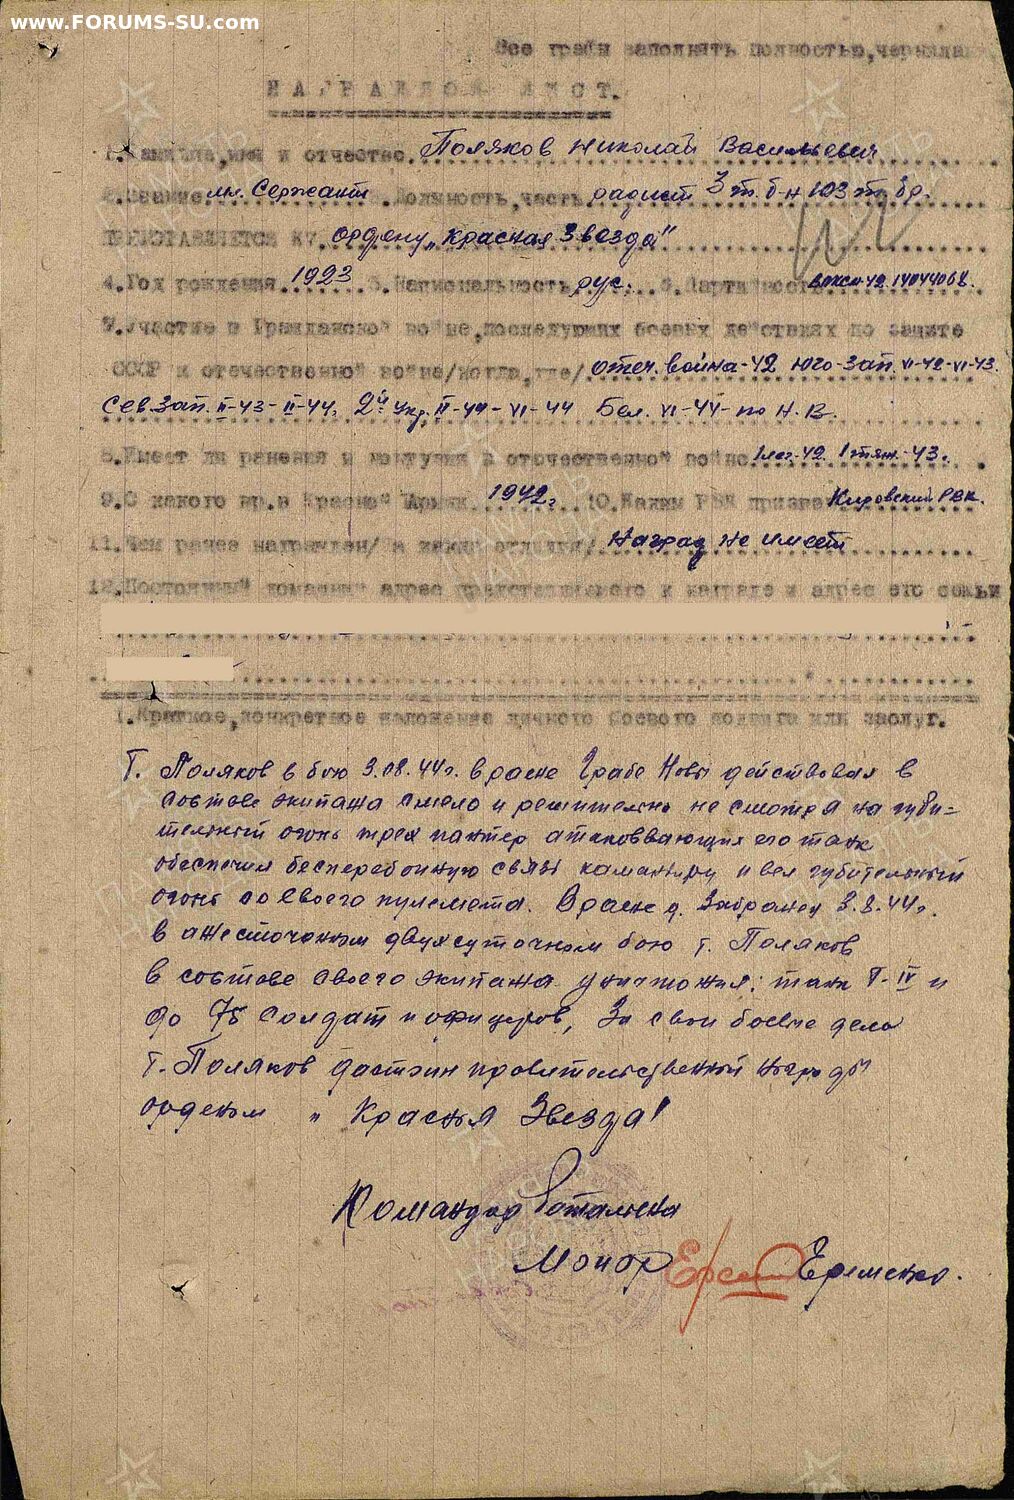 www.FORUMS-SU.com
Все графы заполнять полностью, чернилами
НАГРАДНОЙ ЛИСТ.
1. Фамилия, имя и отчество. Поляков Николай Васильевич
2. Звание. мл. Сержант 3. Должность, часть радист 3 т. б-н 103 т. бр.
ПРЕДСТАВЛЯЕТСЯ К ордену „Красная Звезда"
4. Год рождения 1923 5. Национальность рус. 6. Партийность ВЛКСМ-42 14044068.
7. Участие в Гражданской войне, последующих боевых действиях по защите
СССР и отечественной войне/когда, где/ отеч. война-42 Юго-Зап. VI-42-VI-43.
Сев. Зап. II-43-II-44, 2й Укр. II-44-VI-44 Бел. VI-44-по Н.В.
8. Имеет ли ранения и контузии в отечественной войне 1 лег-42 1 тяж-43.
9. С какого вр. в Красной Армии. 1942г. 10. Каким РВК призван Кировский РВК.
11. Чем ранее награжден/за какие отличия/ Наград не имеет
12. Постоянный домашний адрес представляемого к награде и адрес его семьи
1. Краткое, конкретное изложение личного боевого подвига или заслуг.
Т. Поляков в бою 3.08.44г. в р-не Грабе Новы действовал в
составе экипажа смело и решительно не смотря на губи=
тельный огонь трех пантер атаковвающих его танк
обеспечил бесперебойную связь командиру и вел губительный
огонь со своего пулемета. В р-не д. Забранец 3.8.44г.
в ажесточоном двухсуточном бою т. Поляков
в составе своего экипажа уничтожил: танк Т-IV и
до 75 солдат и офицеров, За свои боевые дела
т. Поляков достоин провительственной награды
орденом „Красная Звезда!
Командир баталиона
Моиор Еременко.